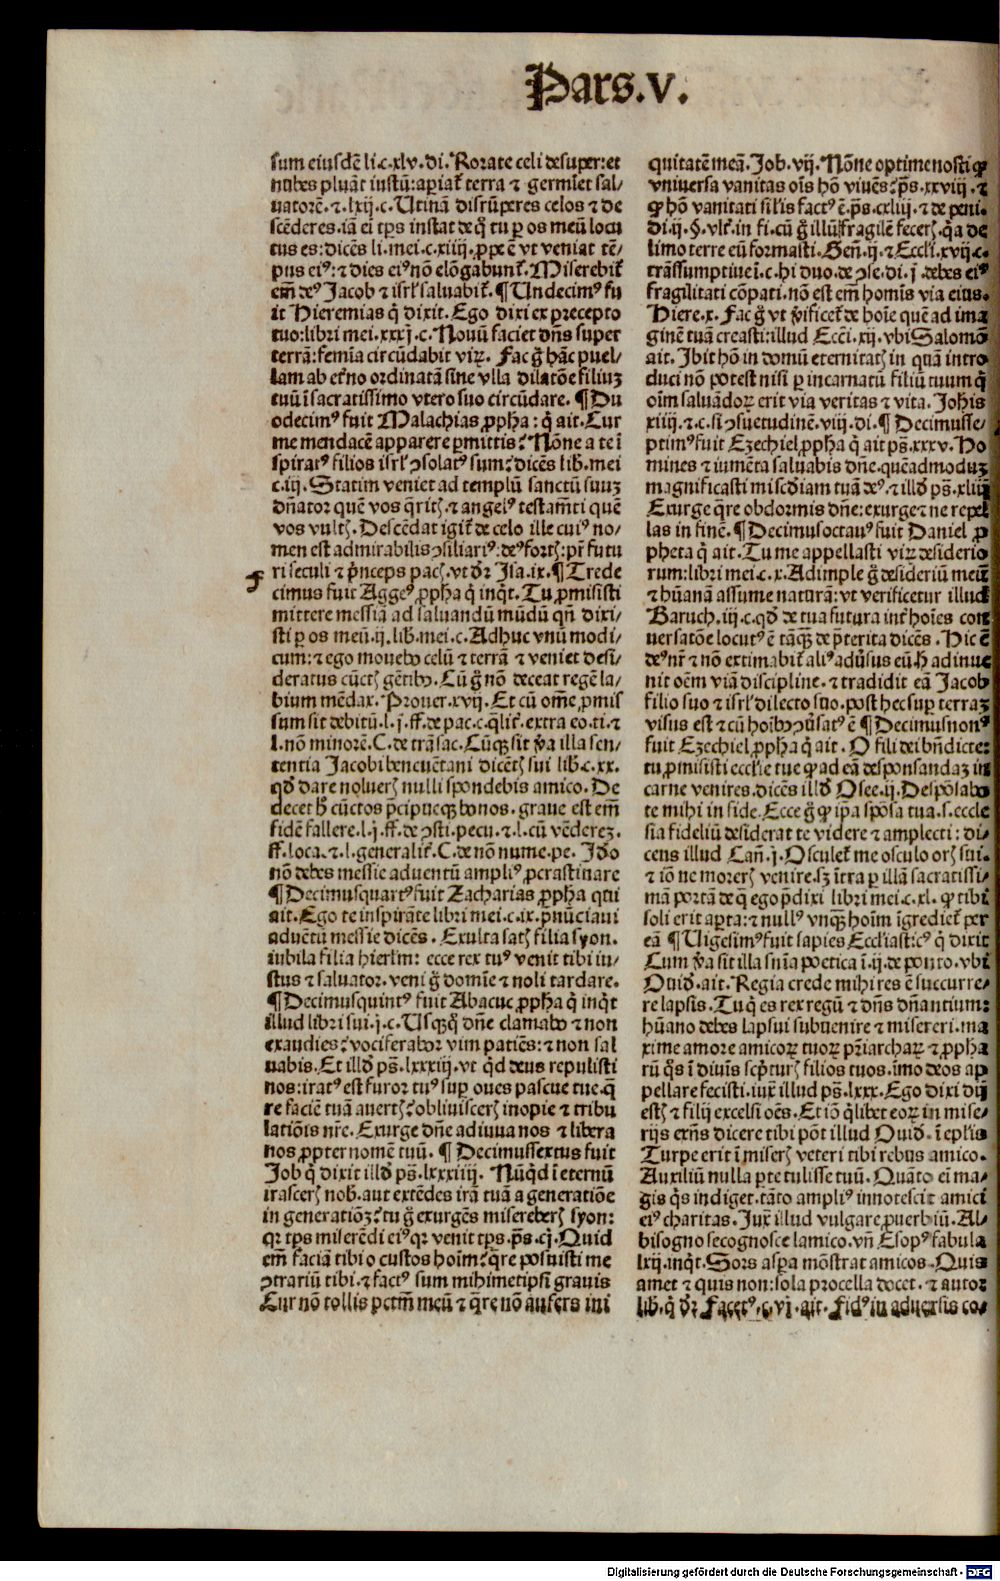 Pars.v.
sum eiusdē li.c.xlv.di. Rorate celi desuper: et
nubes pluāt iustū: apiat̄ terra ⁊ germīet sal/
uatorē. ⁊ .lxij.c. Utinā disrūperes celos ⁊ de
scēderes. iā ei tp̄s instat de q̄ tu ꝑ os meū locu
tus es: dicēs li. mei.c.xiiij. ꝓpe ē vt veniat tē/
pus eiꝰ: ⁊ dies eiꝰ nō elōgabunt̄. Miserebit̄
em̄ deꝰ Jacob ⁊ isrl̄ saluabit̄. ¶ Undecimꝰ fu
it Hieremias q̄ dixit. Ego dixi ex precepto
tuo: libri mei.xxxj.c. Nouū faciet dn̄s super
terrā: femīa circūdabit virꝝ. Fac ḡ hāc puel/
lam ab et̄no ordinatā sine vlla dilatōe filiuꝫ
tuū ī sacratissimo vtero suo circūdare. ¶ Du
odecimꝰ fuit Malachias ꝓpha: q̄ ait. Cur
me mendacē apparere ꝑmittis? Nōne a te ī
spiratꝰ filios isrl̄ ꝯsolatꝰ sum? dicēs lib̄. mei
c.iij. Statim veniet ad templū sanctū suuꝫ
dn̄ator quē vos q̄ritꝭ ⁊ angelꝰ testam̄ti quē
vos vultꝭ. Descēdat igit̄ de celo ille cuiꝰ no/
men est admirabilis ꝯsiliariꝰ: deꝰ fortꝭ: pr̄ futu
ri seculi ⁊ p̄nceps pacꝭ. vt dr̄ Isa.ix. ¶ Trede
F
cimus fuit Aggeꝰ ꝓpha q̄ inq̄t. Tu ꝓmisisti
mittere messiā ad saluandū mūdū qn̄ dixi/
sti ꝑ os meū.ij. lib̄. mei.c. Adhuc vnū modi/
cum: ⁊ ego mouebo celū ⁊ terrā ⁊ veniet desi/
deratus cūctꝭ gētibꝰ. Cū ḡ nō deceat regē la/
bium mēdax. Prouer.xvij. Et cū om̄e ꝓmis
sum sit debitū.l.j.ff.de pac.c.q̄lit̄. extra eo.ti. ⁊
l. nō minorē. C. de trāsac. Cūqꝫ sit v̄a illa sen/
tentia Jacobi beneuētani dicētꝭ sui lib̄.c.xx.
qd̄ dare nolueris nulli spondebis amico. De
decet h̄ cūctos p̄cipueqꝫ bonos. graue est em̄
fidē fallere.l.j.ff.de ꝯsti.pecu. ⁊ .l. cū vēderez.
ff.loca. ⁊ .l. generalit̄. C. de nō nume.pe. Ido
nō debes messie aduentū ampliꝰ ꝓcrastinare
¶ Decimusquartꝰ fuit Zacharias ꝓpha qui
ait. Ego te inspirāte libri mei.c.ix. ꝓnūciaui
aduētū messie dicēs. Exulta satꝭ filia syon.
iubila filia hierlm̄: ecce rex tuꝰ venit tibi iu/
stus ⁊ saluator. veni ḡ domīe ⁊ noli tardare.
¶ Decimusquintꝰ fuit Abacuc ꝓpha q̄ inq̄t
illud libri sui.j.c. Usqꝫq̄ dn̄e clamabo ⁊ non
exaudies? vociferabor vim patiēs: ⁊ non sal
uabis. Et illd̄ ps̄.lxxxiij. vt q̄d deus repulisti
nos: iratꝰ est furor tuꝰ suꝑ oues pascue tue. q̄
re faciē tuā auertꝭ? obliuiscerꝭ inopie ⁊ tribu
latiōis nr̄e. Exurge dn̄e adiuua nos ⁊ libera
nos ꝓpter nomē tuū. ¶ Decimussextus fuit
Job q̄ dixit illd̄ ps̄.lxxxiiij. Nūqd̄ ī eternū
irascerꝭ nob̄. aut extēdes irā tuā a generatiōe
in generatiōꝫ? tu ḡ exurgēs misereberꝭ syon:
qꝛ tp̄s miserēdi eiꝰ qꝛ venit tp̄s. ps̄.cj. Quid
em̄ faciā tibi o custos hoīm? q̄re posuisti me
ꝯtrariū tibi. ⁊ factꝰ sum mihimetipsi grauis
Cur nō tollis pctm̄ meū ⁊ q̄re nō aufers ini
quitatē meā. Job.vij. Nōne optime nosti ꝙ
vniuersa vanitas oīs hō viuēs? ps̄.xxviij. ⁊
ꝙ hō vanitati sil̄is factꝰ ē. ps̄.cxliij. ⁊ de peni.
di.ij.§.vlt̄. in fi. cū ḡ illū fragilē fecerꝭ. q̄a de
limo terre eū formasti. Gen̄.ij. ⁊ Eccli.xvij.c.
trāssumptiue ī.c. hi duo. de ꝯse.di.j. debes eiꝰ
fragilitati cōpati. nō est em̄ homīs via eius.
Hiere.x. Fac ḡ vt v̄ificet̄ de hoīe quē ad ima
ginē tuā creasti: illud Ecci.xij. vbi Salomō
ait. Ibit hō in domū eternitatꝭ in quā intro
duci nō potest nisi ꝑ incarnatū filiū tuum q̄
oīm saluādoꝝ erit via veritas ⁊ vita. Johis
xiiij. ⁊ .c. si ꝯsuetudinē.viij.di. ¶ Decimusse/
ptimꝰ fuit Ezechiel ꝓpha q̄ ait ps̄.xxxv. Ho
mines ⁊ iumēta saluabis dn̄e. quēadmoduꝫ
magnificasti mīscd̄iam tuā deꝰ. ⁊ illd̄ ps̄.xliij
Exurge q̄re obdormis dn̄e: exurge ⁊ ne repel
las in finē. ¶ Decimusoctauꝰ fuit Daniel ꝓ
pheta q̄ ait. Tu me appellasti virꝝ desiderio
rum: libri mei.c.x. Adimple ḡ desideriū meū
⁊ hūanā assume naturā: vt verificetur illud
Baruch.iij.c. qd̄ de tua futura int̄ hoīes con
uersatōe locutꝰ ē tāqꝫ de p̄terita dicēs. Hic ē
deꝰ nr̄ ⁊ nō extimabit̄ aliꝰ adūsus eū. H adinue
nit oēm viā discipline. ⁊ tradidit eā Jacob
filio suo ⁊ isrl̄ dilecto suo. post hec suꝑ terraꝫ
visus est ⁊ cū hoībꝰ ꝯūsatꝰ ē ¶ Decimusnonꝰ
fuit Ezechiel ꝓpha q̄ ait. O fili dei bn̄dicte:
tu ꝓmisisti ecclie tue ꝙ ad eā desponsandaꝫ in
carne venires. dicēs illd̄ Osee.ij. Despōsabo
te mihi in fide. Ecce ḡ ꝙ ip̄a spōsa tua.s. eccle
sia fideliū desiderat te videre ⁊ amplecti: di/
cens illud Can̄.j. Osculet̄ me osculo orꝭ sui.
⁊ iō ne morerꝭ venire. sꝫ ītra ꝑ illā sacratissi/
mā portā de q̄ ego p̄dixi libri mei.c.xl. ꝙ tibi
soli erit aꝑta: ⁊ nullꝰ vnqꝫ hoīm īgrediet̄ per
eā ¶ Uigesimꝰ fuit sapīes Eccl̄iasticꝰ q̄ dixit
Cum v̄a sit illa sn̄ia poetica ī.ij. de ponto. vbi
Ouid̄. ait. Regia crede mihi res ē succurre/
re lapsis. Tu q̄ es rex regū ⁊ dn̄s dn̄antium:
hūano debes lapsui subuenire ⁊ misereri. ma
xime amore amicoꝝ tuoꝝ pr̄iarchaꝝ ⁊ ꝓpha
rū q̄s ī diuīs scp̄turꝭ filios tuos. īmo deos ap
pellare fecisti. iux̄ illud ps̄.lxxx. Ego dixi dij
estꝭ ⁊ filij excelsi oēs. Et iō q̄libet eoꝝ in mise/
rijs exn̄s dicere tibi pōt illud Ouid̄. ī ep̄lis
Turpe erit ī miserꝭ veteri tibi rebus amico.
Auxiliū nulla ꝑte tulisse tuū. Quāto ei ma/
gis q̄s indiget. tāto ampliꝰ innotescit amici
eiꝰ charitas. Jux̄ illud vulgare ꝓuerbiū. Al/
bisogno se cognosce lamico. vn̄ Esopꝰ fabula
lxij. inq̄t. Sors aspera mōstrat amicos. Quis
amet ⁊ quis non: sola procella docet. ⁊ autor
lib̄. q̄ dr̄ Facetꝰ.c.vj. ait. Fidꝰ in aduersis co/
Digitalisierung gefördert durch die Deutsche Forschungsgemeinschaft - DFG